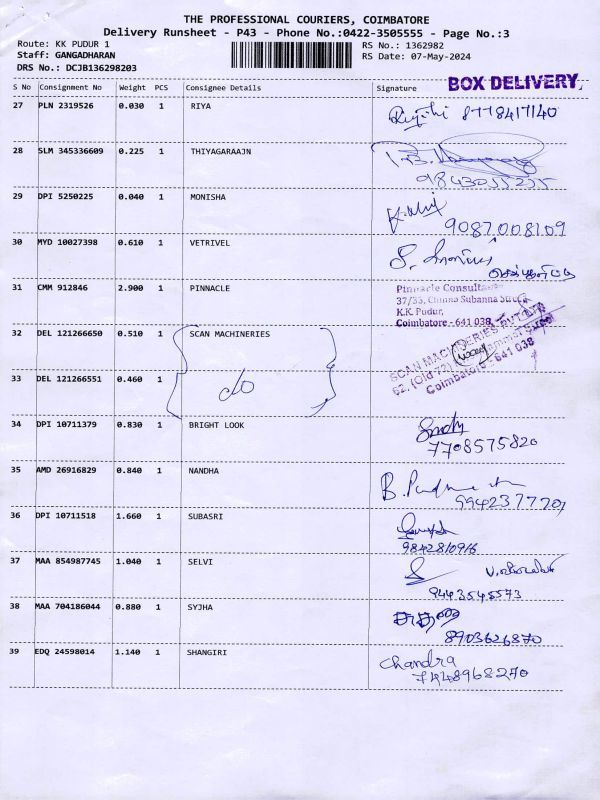 THE PROFESSIONAL COURIERS, COIMBATORE
Delivery Runsheet - P43 - Phone No.:0422-3505555 - Page No.:3
Route: KK PUDUR 1 RS No.: 1362982
Staff: GANGADHARAN RS Date: 07-May-2024
DRS No.: DCJB136298203
BOX DELIVERY
S No Consignment No Weight PCS Consignee Details Signature
27 PLN 2319526 0.030 1 RIYA 8778417140
28 SLM 345336609 0.225 1 THIYAGARAAJN
9843055255
29 DPI 5250225 0.040 1 MONISHA
9087008109
30 MYD 10027398 0.610 1 VETRIVEL
31 CMM 912846 2.900 1 PINNACLE Pinnacle Consultan
37/33, Chinna Subanna Street
K.K. Pudur,
Coimbatore - 641 038
32 DEL 121266650 0.510 1 SCAN MACHINERIES SCAN MACHINERIES PVT LTD
62, (Old 72)
Coimbatore - 641 038
33 DEL 121266551 0.460 1 c/o
34 DPI 10711379 0.830 1 BRIGHT LOOK
7708575820
35 AMD 26916829 0.840 1 NANDHA
9942377701
36 DPI 10711518 1.660 1 SUBASRI
9842810916
37 MAA 854987745 1.040 1 SELVI
9443545573
38 MAA 704186044 0.880 1 SYJHA
8903626870
39 EDQ 24598014 1.140 1 SHANGIRI Chandra
7448968270